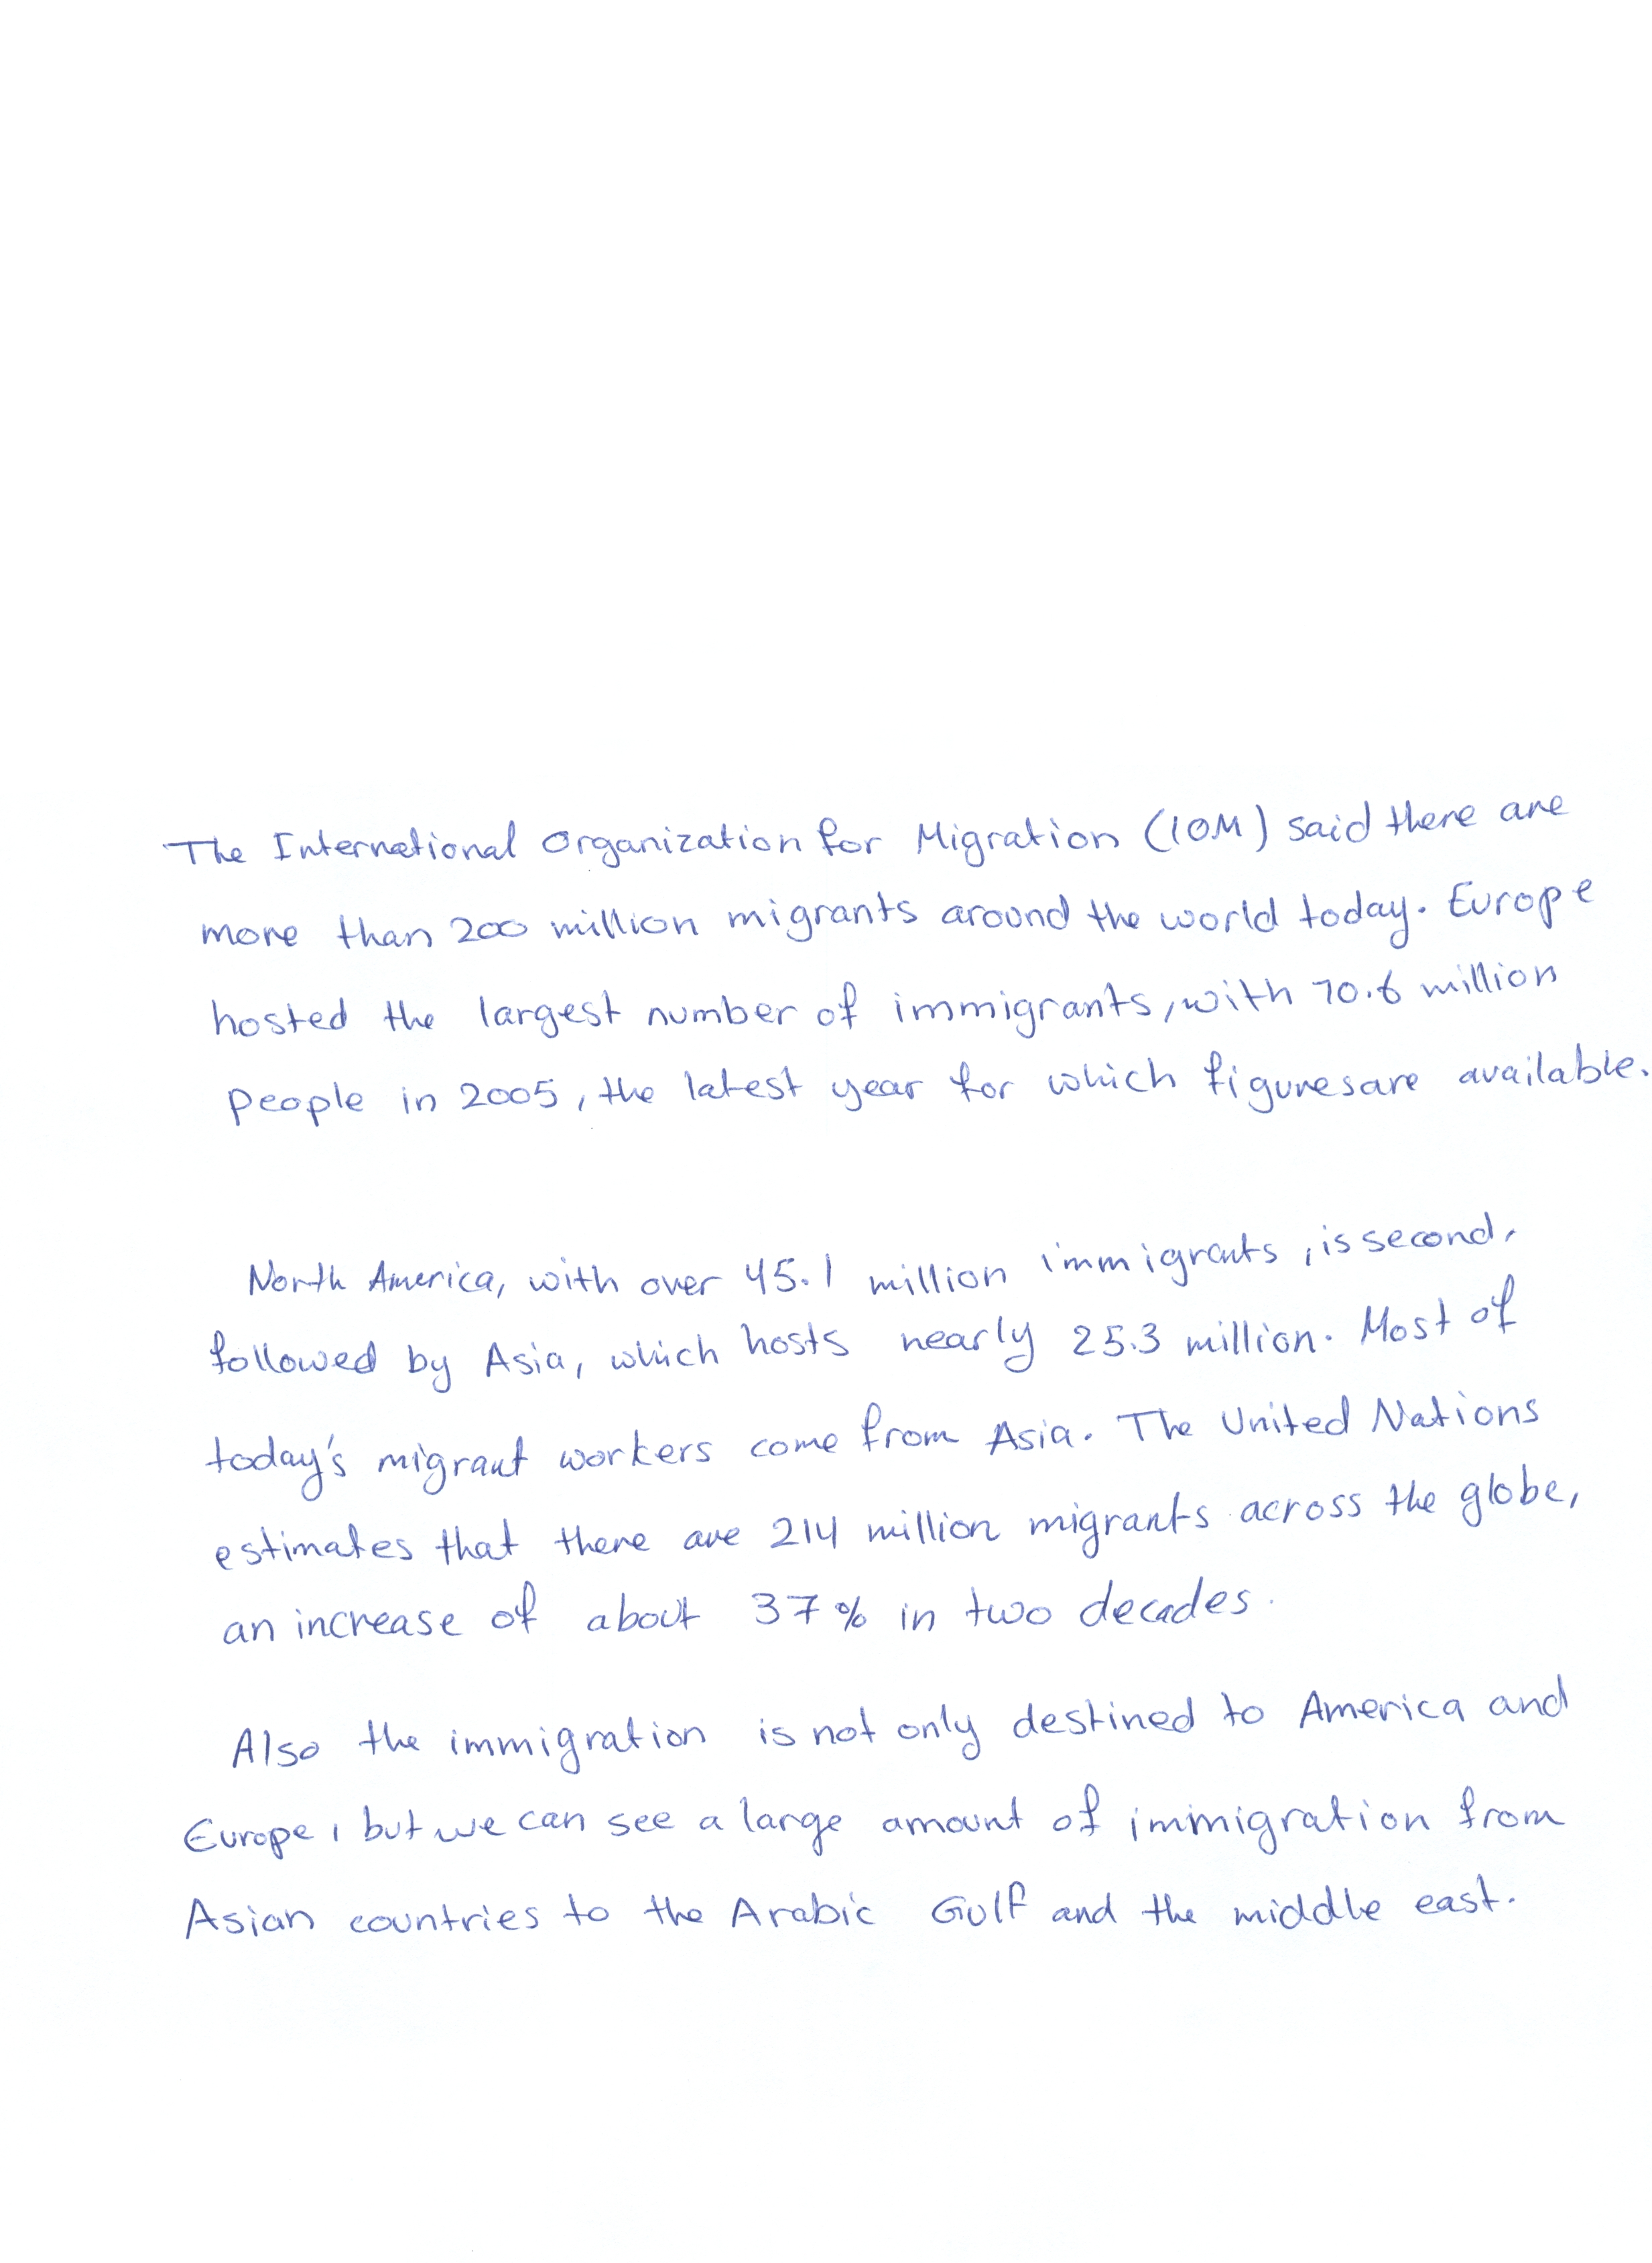 The International Organization for Migration (IOM) said there are
more than 200 million migrants around the world today. Europe
hosted the largest number of immigrants, with 70.6 million
People in 2005, the latest year for which figures are available.
North America, with over 45.1 million immigrants, is second.
followed by Asia, which hosts nearly 25.3 million. Most of
today's migrant workers come from Asia. The United Nations
estimates that there are 214 million migrants across the globe,
an increase of about 37% in two decades.
Also the immigration is not only destined to America and
Europe, but we can see a large amount of immigration from
Asian countries to the Arabic Gulf and the middle east.